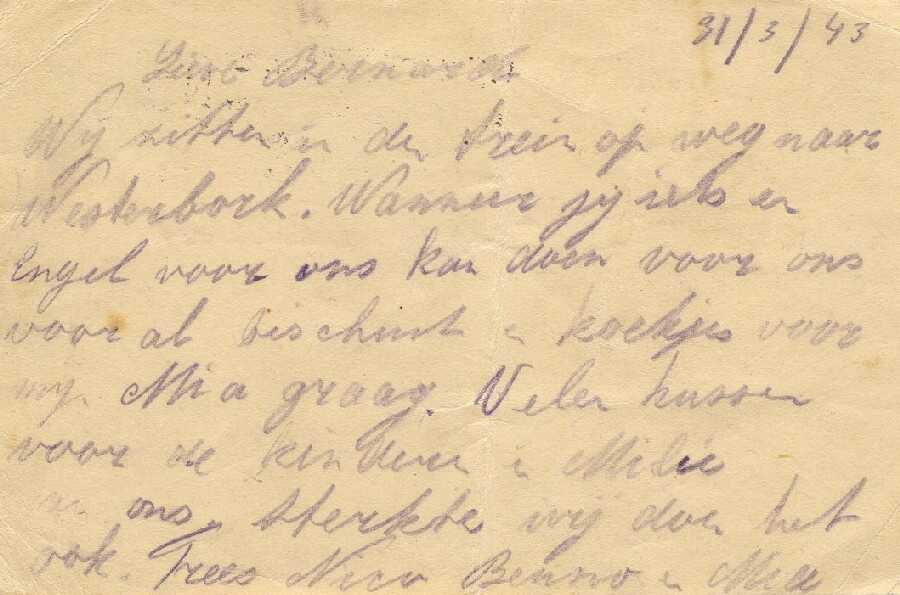 31/3/43
Lieve Bernard
Wij zitten in den trein op weg naar
Westerbork. Wanneer jij iets en
Engel voor ons kan doen voor ons
voor al bischuit en koekjes voor
mijn Mia graag. Velen kussen
voor de kinderen en Milie
van ons, sterkte wij doen het
ook. Trees Nico Benno en Mia